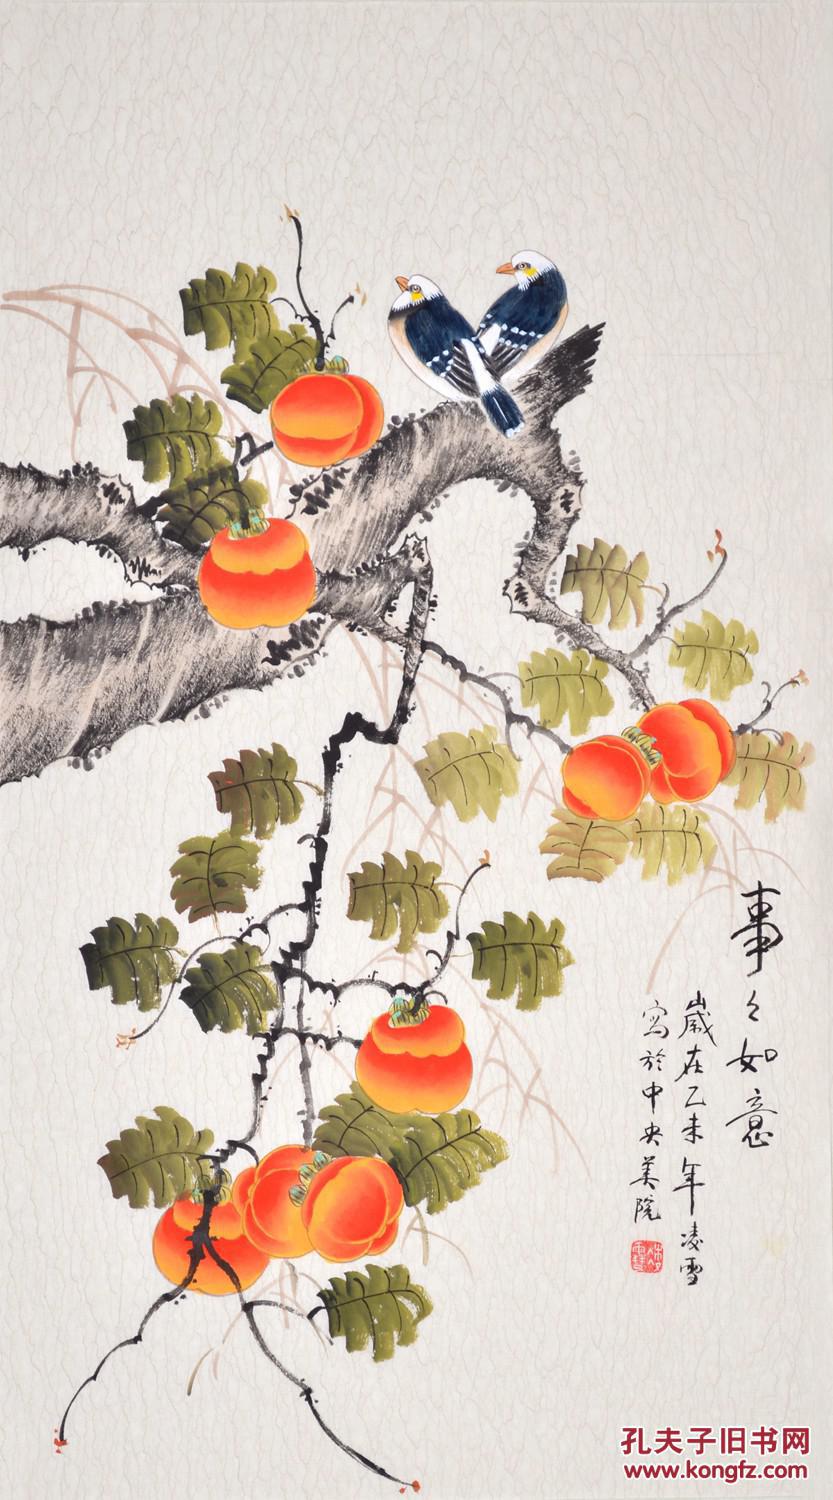 事々如意
歲在乙未年凌雪
寫於中央美院
孔夫子旧书网
www.kongfz.com